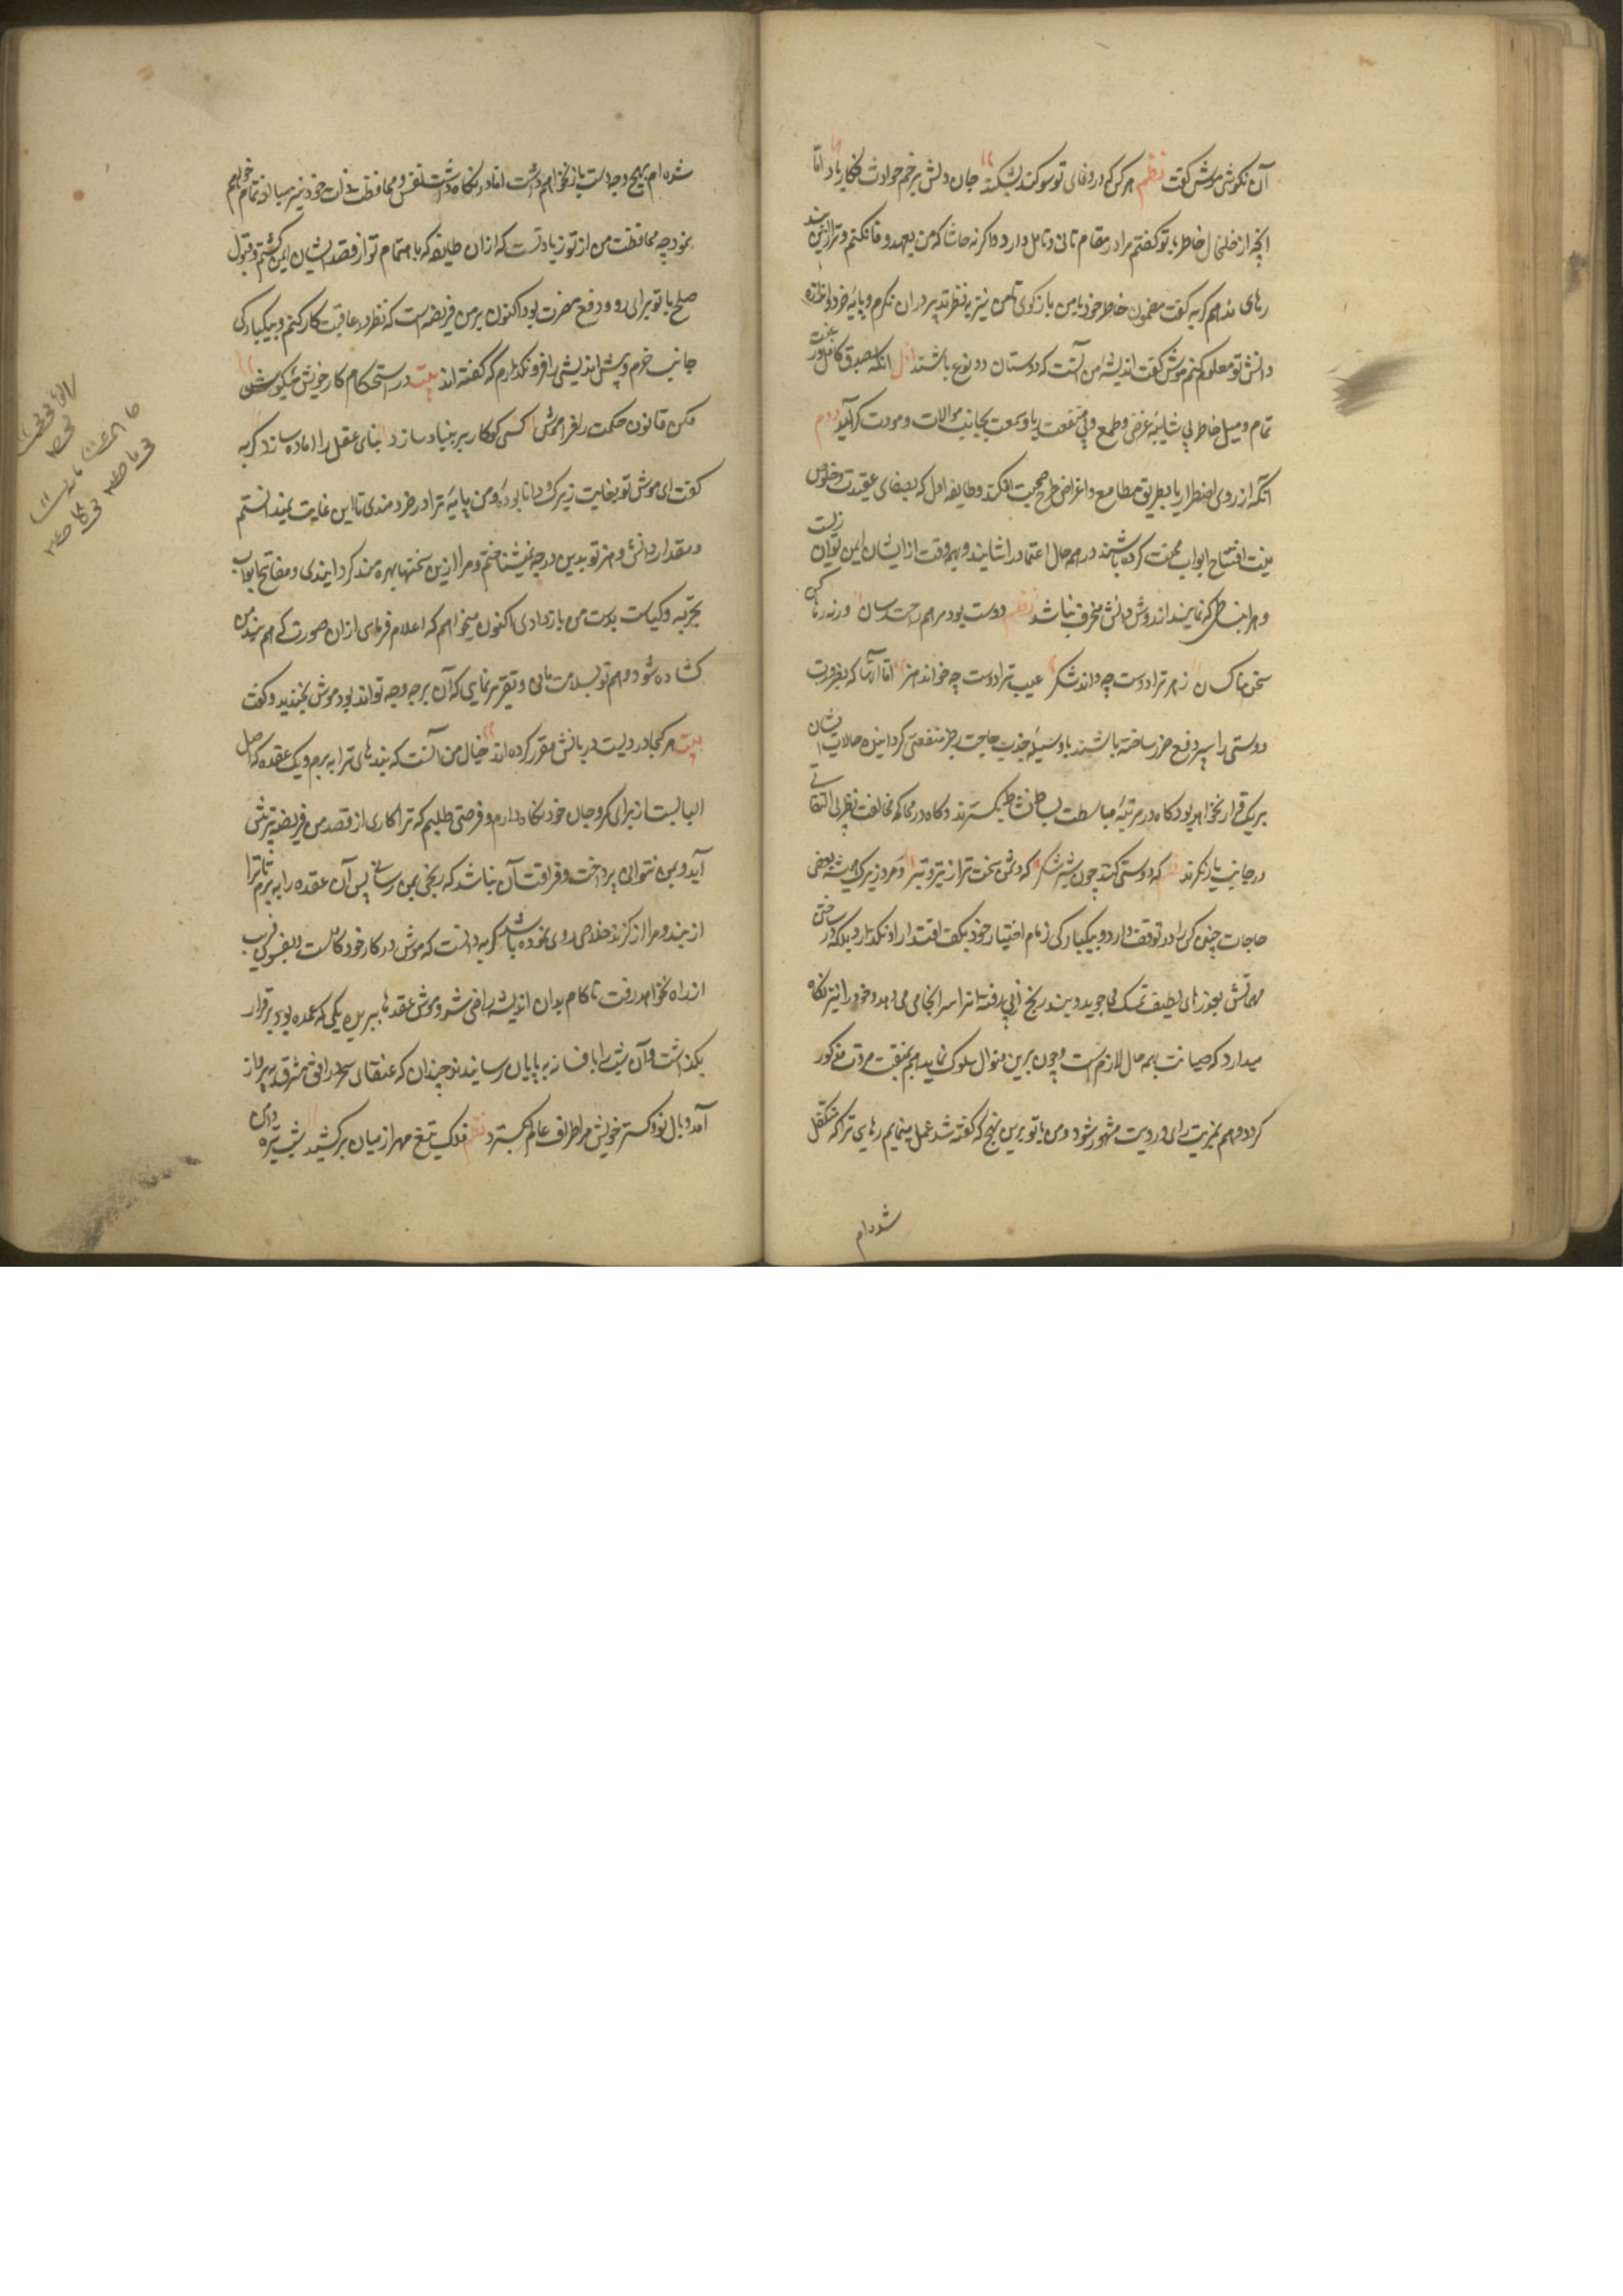 آن نکوشی موش گفت نظم هر کس که در وفای تو سوکند بشکند جان و دلش بزخم حوادث فکار باد اما
آنچه از خلخال خاطر با تو گفتم مرا در مقام تانی و تامل دارد و اکر نه حاشا که من بعهد وفا نکنم و ترا ازین بند
رهای ندهم کربه گفت مضمون خاطر خود با من باز کوی تا من نیز به نظر تدبیر در ان نکرم و پایه خرد و اندازه
دانش تو معلوم کنم موش گفت اندیشه من آنست که دوستان دو نوع باشند اول انکه بصدق کامل و رغبت
تمام و میل خاطر بی شایبه غرض و طمع و بی منقصت ریا و سمعت بجانب موالات و مودت کراید دوم
آنکه از روی اضطرار یا بطریق مطامع و اغراض طرح صحبت افکند و طایفه اول که بصفای عقیدت و خلوص
نیت افتتاح ابواب محبت کرده باشند در همه حال اعتماد را شایند و بهر وقت از ایشان ایمن توان زیست
و هر انبساطی که نمایند از روش دانش منحرف نباشد نظم دوست بود مرهم راحت رسان ورنه رها کن
سخن ناکسان زهر ترا دوست چه داند شکر عیب ترا دوست چه خواند هنر اما آنها که بضرورت
دوستی را سپر دفع ضرر ساخته باشند یا وسیله جذب حاجت و جر منفعتی کردانیده حالات ایشان
بر یک قرار نخواهد بود کاه در مرتبه مباسطت بساط نشاط بکسترند و کاه در محاکمه مخالفت نظر بی التفاتی
در جانب یار نکرند نظم که دوستی کند چون شیر شکر که دشمن سخت تر از تیر و تبر و مرد زیرک همیشه بعضی
حاجات چنین کس را در توقف دارد و بیکبارکی زمام اختیار خود بکف اقتدار او نکذارد بلکه در ساختن
مهماتش بعذرهای لطیف تمسک می جوید و بتدریج از پی رفته تا ترا سرانجامی می دهد و خود را نیز نکاه
میدارد که صیانت بهمه حال لازم است و چون برین منوال سلوک نماید هم بمنقبت مروت مذکور
کردد و هم بمزیت رای و رویت مشهور شود و من با تو برین نهج که گفته شد عمل مینمایم رهایی ترا که متکفل
شده ام
شده ام بهیچ وجه دست باز نخواهم داشت اما در نکاه داشت نفس و محافظت ذات خود نیز مبالغه تمام خواهم
نمود چه محافظت من از تو زیاد تست که از ان طایفه که باهتمام تو از قصد ایشان ایمن کشتم و قبول
صلح با تو برای رو و دفع مضرت بود اکنون بر من فریضه است که نظر در عاقبت کار کنم و بیکبارکی
جانب حزم و پیش اندیشی را فرو نکذارم که گفته اند بیت در استحکام کار خویش نیکوش
مکن قانون حکمت را فراموش کسی کو کار بر بنیاد سازد بنای عقل را اماده سازد کربه
گفت ای موش تو بغایت زیرک و دانا بوده و من پایه ترا در خردمندی تا این غایت نمیدانستم
و مقدار دانش و هنر تو بدین درجه نمیشناختم و مرا ازین سخنها بهره مند کردانیدی و مفاتیح ابواب
تجربه و کیاست بدست من باز دادی اکنون میخواهم که اعلام فرمای از ان صورت که هم بند من
کشاده شود و هم تو بسلامت مانی و تقریر نمای که آن بر چه وجه تواند بود موش بخندید و گفت
بیت هر کجا دردیست درمانش مقرر کرده اند خیال من آنست که بندهای ترا به برم و یک عقده که اصل
البابست از برای کرو جان خود نکاه دارم و فرصتی طلبم که ترا کاری از قصد من فریضه تر پیش
آید و بمن نتوانی پرداخت و فراقت آن نباشد که رنجی بمن رسانی پس آن عقده را به برم تا ترا
از بند و مرا از کزند خلاصی روی نموده باشد کربه دانست که موش در کار خود کاملست و بفسون و فریب
از راه نخواهد رفت ناکام بدان اندیشه راضی شد و موش عقدها ببرید و یکی که عمده بود برقرار
بکذاشت و آن شب را با فسانه به پایان رسانیدند چندان که عنقای سحر در افق مشرق به پرواز
آمد و بال نور کستر خویش بر اطراف عالم بکسترد نظم فلک تیغ مهر از میان برکشید شب تیره دامن